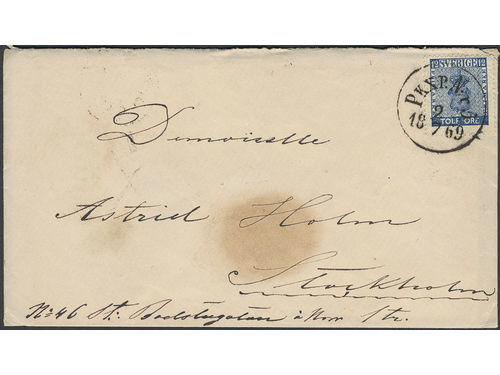 12 SVERIGE 12
TOLF ÖRE
PKXP. N:
2
18 69
Demoiselle
Astrid Holm
Stockholm
No 46 St: Badstugatan å Norr Str.